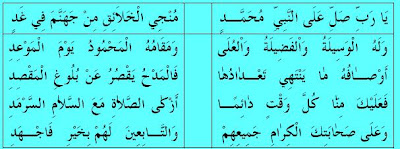 يَا رَبِّ صَلِّ عَلَى النَّبِيِّ مُحَمَّـــدٍ مُنْجِي الْخَلاَئِقِ مِنْ جَهَنَّمَ فِي غَدٍ
وَلَهُ الْوَسِيلَةُ وَالْفَضِيلَةُ وَالْعُلَى وَمَقَامُهُ الْمَحْمُودُ يَوْمَ الْمَوْعِدِ
أَوْصَافُهُ مَا يَنْتَهِي تَعْـدَادُهَا فَالْمَدْحُ يَقْصُرُ عَنْ بُلُوغِ الْمَقْصِدِ
فَعَلَيْكَ مِنَّا كُلَّ وَقْتٍ دَائِمًـا أَزْكَى الصَّلاَةِ مَعَ السَّلاَمِ السَّرْمَدِ
وَعَلَى صَحَابَتِكَ الْكِرَامِ جَمِيعِهِمْ وَالتَّـابِعِينَ لَهُمْ بِخَيْرٍ فَاجْـهَدِ